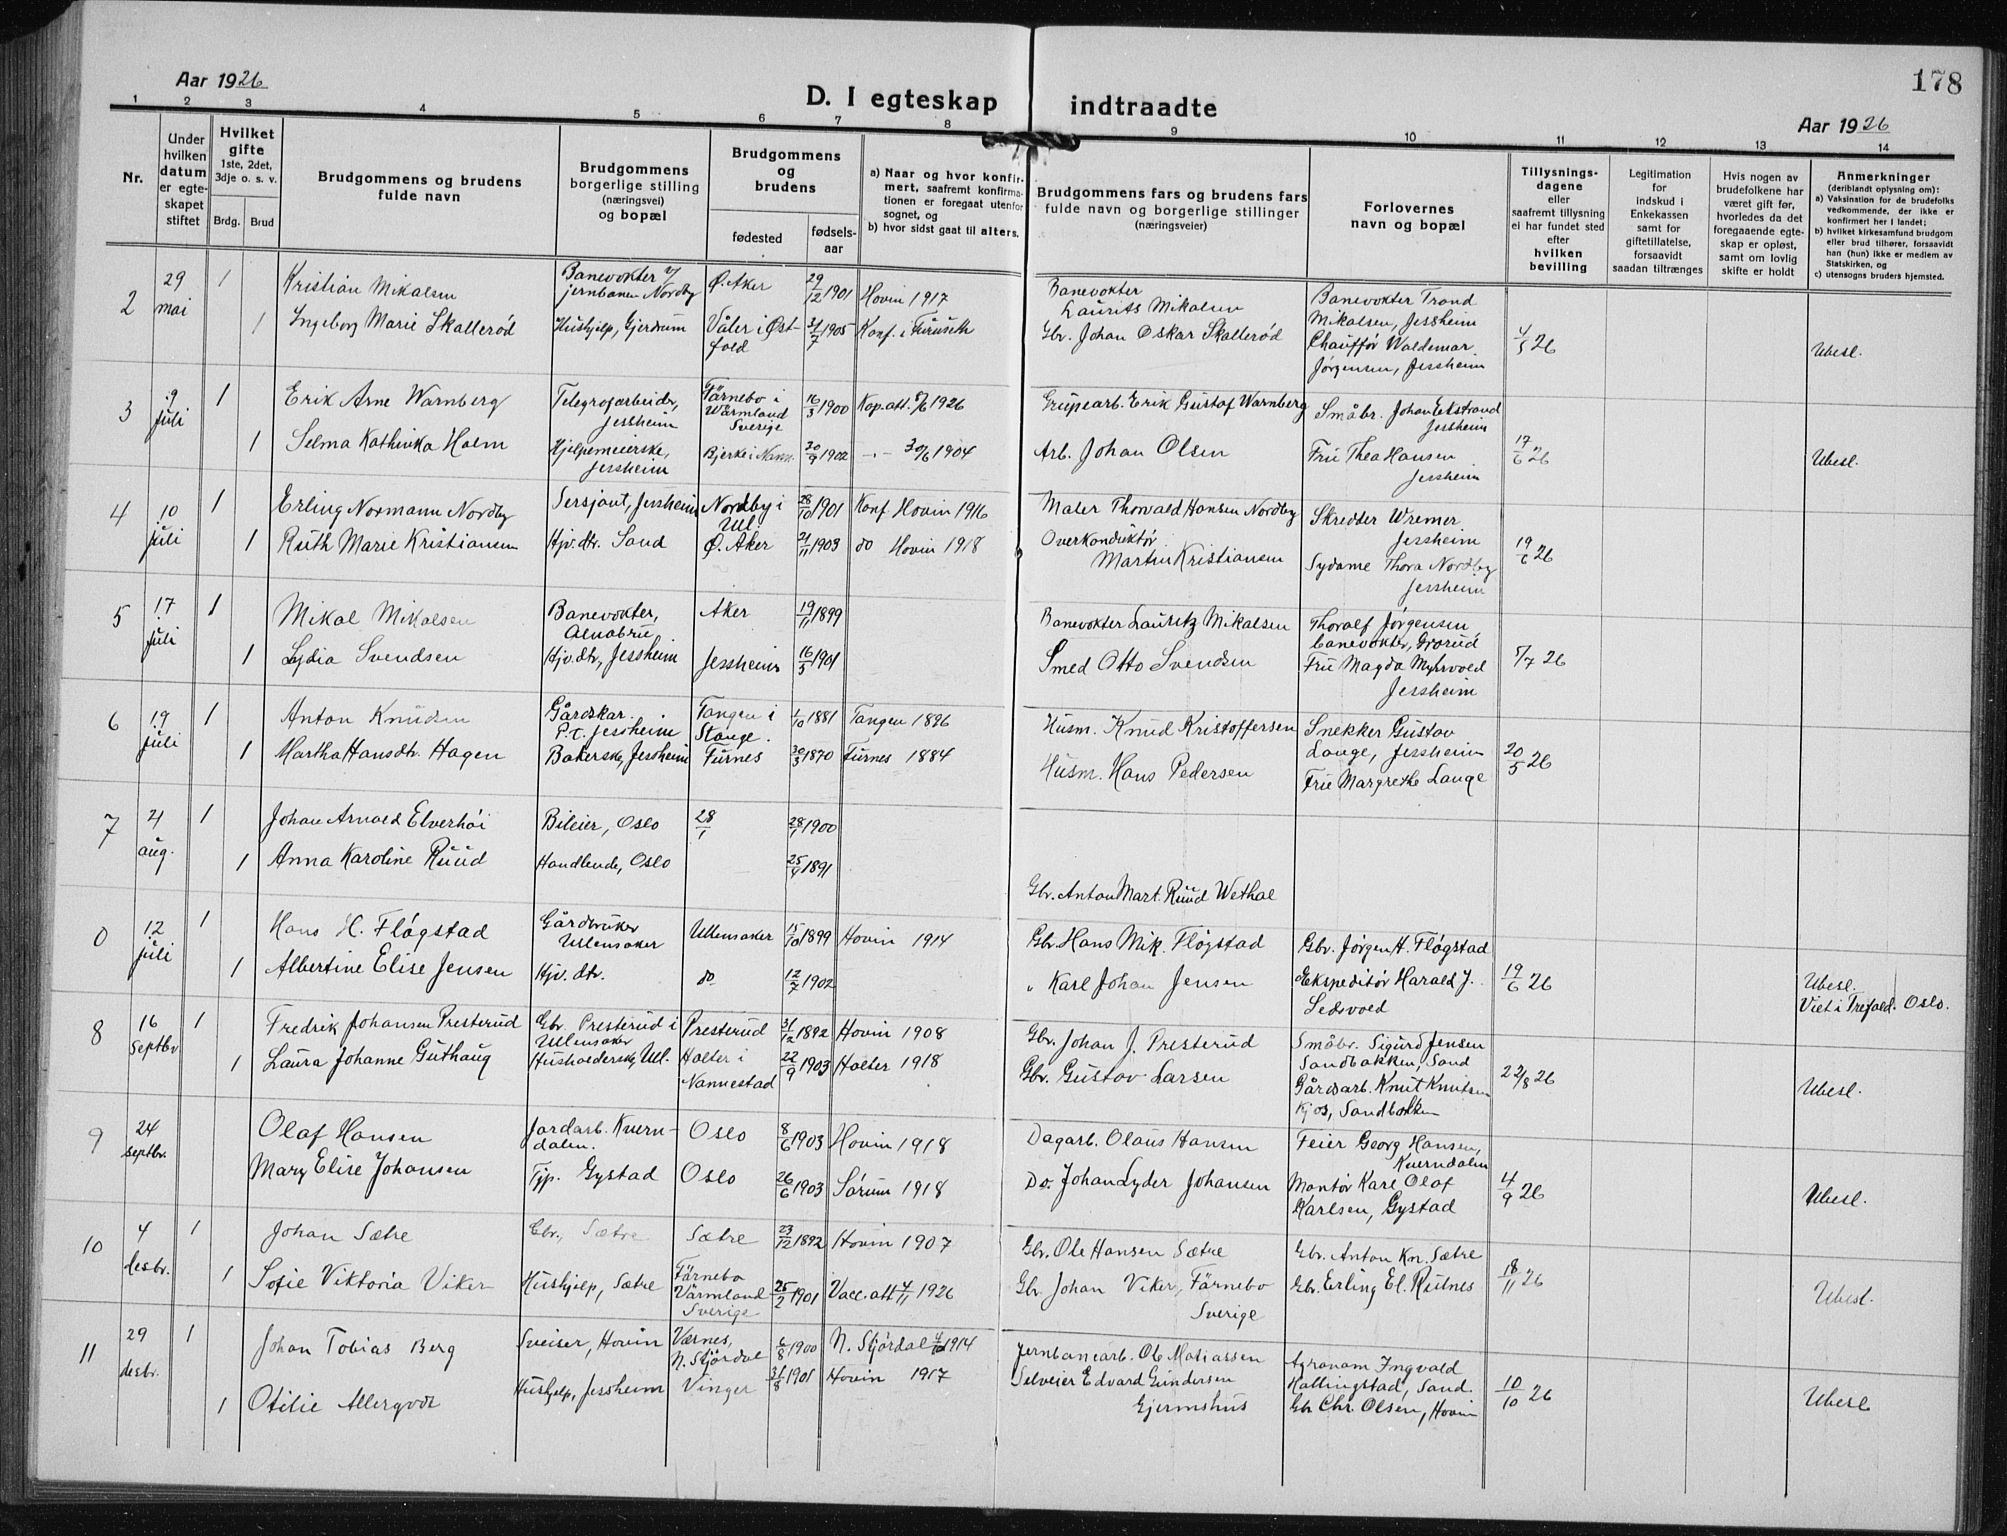 178
Aar 1926
D. I egteskap indtraadte
Aar 1926
1 2 3 4 5 6 7 8 9 10 11 12 13 14
Nr.
Under hvilken datum er egteskapet stiftet
Hvilket gifte 1ste, 2det, 3dje o. s. v.
Brdg. Brud
Brudgommens og brudens fulde navn
Brudgommens borgerlige stilling (næringsvei) og bopæl
Brudgommens og brudens
fødested
fødselsaar
a) Naar og hvor konfirmert, saafremt konfirmationen er foregaat utenfor sognet, og
b) hvor sidst gaat til alters.
Brudgommens fars og brudens fars fulde navn og borgerlige stillinger (næringsveier)
Forlovernes navn og bopæl
Tillysningsdagene eller saafremt tillysning ei har fundet sted efter hvilken bevilling
Legitimation for indskud i Enkekassen samt for giftetillatelse, forsaavidt saadan tiltrænges
Hvis nogen av brudefolkene har været gift før, hvorledes da det foregaaende egteskap er opløst, samt om lovlig skifte er holdt
Anmerkninger (deriblandt oplysning om):
a) Vaksination for de brudefolks vedkommende, der ikke er konfirmert her i landet;
b) hvilket kirkesamfund brudgom eller brud tilhører, forsaavidt han (hun) ikke er medlem av Statskirken, og
c) utensogns bruders hjemsted.
2 29 mai 1 Kristian Mikalsen Banevokter v/ jernbanen Nordby Ø. Aker 29/12 1901 Hovin 1917 Banevokter Laurits Mikalsen Banevokter Trond Mikalsen, Jessheim
1 Ingeborg Marie Skallerød Hushjelp, Gjerdrum Våler i Østfold 31/7 1905 Konf. i Furuseth Gbr. Johan Oskar Skallerød Chauffør Waldemar Jørgensen, Jessheim 4/5 26 Ubesl.
3 9 juli 1 Erik Arne Warnberg Telegrafarbeider, Jessheim Färnebo i Wärmland Sverige 16/3 1900 Kop. att. 8/6 1926 Grupearb. Erik Gustaf Warnberg Småbr. Johan Ekstrand Jessheim
1 Selma Kathinka Holm Hjelpemeierske, Jessheim Bjerke i Nann. 30/9 1902 -"- 30/6 1904 Arb. Johan Olsen Fru Thea Hansen Jessheim 17/6 26 Ubesl.
4 10 juli 1 Erling Normann Nordby Sersjant, Jessheim Nordby i Ul. 28/10 1901 Konf. Hovin 1916 Maler Thorvald Hansen Nordby Skredder Wremer Jessheim
1 Ruth Marie Kristiansen Hjv. dtr. Sand Ø. Aker 21/11 1903 do Hovin 1918 Overkonduktør Martin Kristiansen Sydame Thora Nordby Jessheim 19/6 26
5 17 juli 1 Mikal Mikalsen Banevokter, Alnabru Aker 19/11 1899 Banevokter Lauritz Mikalsen Thoralf Jørgensen banevokter, Grorud
1 Lydia Svendsen Hjv. dtr, Jessheim Jessheim 16/3 1901 Smed Otto Svendsen Fru Magda Myhrvold Jessheim 5/7 26
6 19 juli 1 Anton Knudsen Gårdskar. P.t. Jessheim Tangen i Stange. 1/10 1881 Tangen 1896 Husm. Knud Kristoffersen Snekker Gustav Lange, Jessheim
1 Martha Hansdtr. Hagen Bakerske, Jessheim Furnes 30/3 1870 Furnes 1884 Husm. Hans Pedersen Fru Margrethe Lange 20/5 26
7 21 aug. 1 Johan Arnold Elverhöi Bileier, Oslo 28/1 28/1 1900
1 Anna Karoline Ruud Handlende, Oslo 25/4 1891 Gbr. Anton Mart. Ruud Wethal
0 12 juli 1 Hans H. Fløgstad Gårdbruker Ullensaker Ullensaker 15/10 1899 Hovin 1914 Gbr. Hans Mik. Fløgstad Gbr. Jørgen H. Fløgstad
1 Albertine Elise Jensen Hjv. dtr. do 12/7 1902 " Karl Johan Jensen Ekspeditør Harald J. Ledsvold 19/6 26 Ubesl. Viet i Trefold. Oslo.
8 16 septbr 1 Fredrik Johansen Presterud Gbr. Presterud i Ullensaker Presterud 31/12 1892 Hovin 1908 Gbr. Johan J. Presterud Småbr. Sigurd Jensen Sandbakken, Sand
1 Laura Johanne Guthaug Husholderske, Ul. Holter i Nannestad 22/9 1903 Holter 1918 Gbr. Gustav Larsen Gårdsarb. Knut Knutsen Kjos, Sandbakken 22/8 26 Ubesl.
9 24 septbr. Olaf Hansen Jordarb. Kverndalen. Oslo 8/6 1903 Hovin 1918 Dagarb. Olaus Hansen Feier Georg Hansen, Kverndalen
Mary Elise Johansen Tjp. Gystad Oslo 26/6 1903 Sørum 1918 Do. Johan Lyder Johansen Montør Karl Olaf Karlsen, Gystad 4/9 26 Ubesl.
10 4 desbr. 1 Johan Sætre Gbr., Sætre Sætre 23/12 1892 Hovin 1907 Gbr. Ole Hansen Sætre Gbr. Anton Kn. Sætre
1 Sofie Viktoria Viker Hushjelp, Sætre Färnebo Värmland Sverige 25/2 1901 Vacc. att 4/11 1926 Gbr Johan Viker, Färnebo Sverige Gbr. Erling El. Rutnes 18/11 26 Ubesl.
11 29 desbr. 1 Johan Tobias Berg Sveiser, Hovin Værnes, N. Stjørdal 6/8 1900 N. Stjördal 4/10 1914 Jernbanearb. Ole Matiassen Agronom Ingvald Hallingstad, Sand.
1 Otilie Allergodt Hushjelp, Jessheim Vinger 31/8 1901 Hovin 1917 Selveier Edvard Gundersen Gjermshus Gbr Chr. Olsen, Hovin 10/10 26 Ubesl